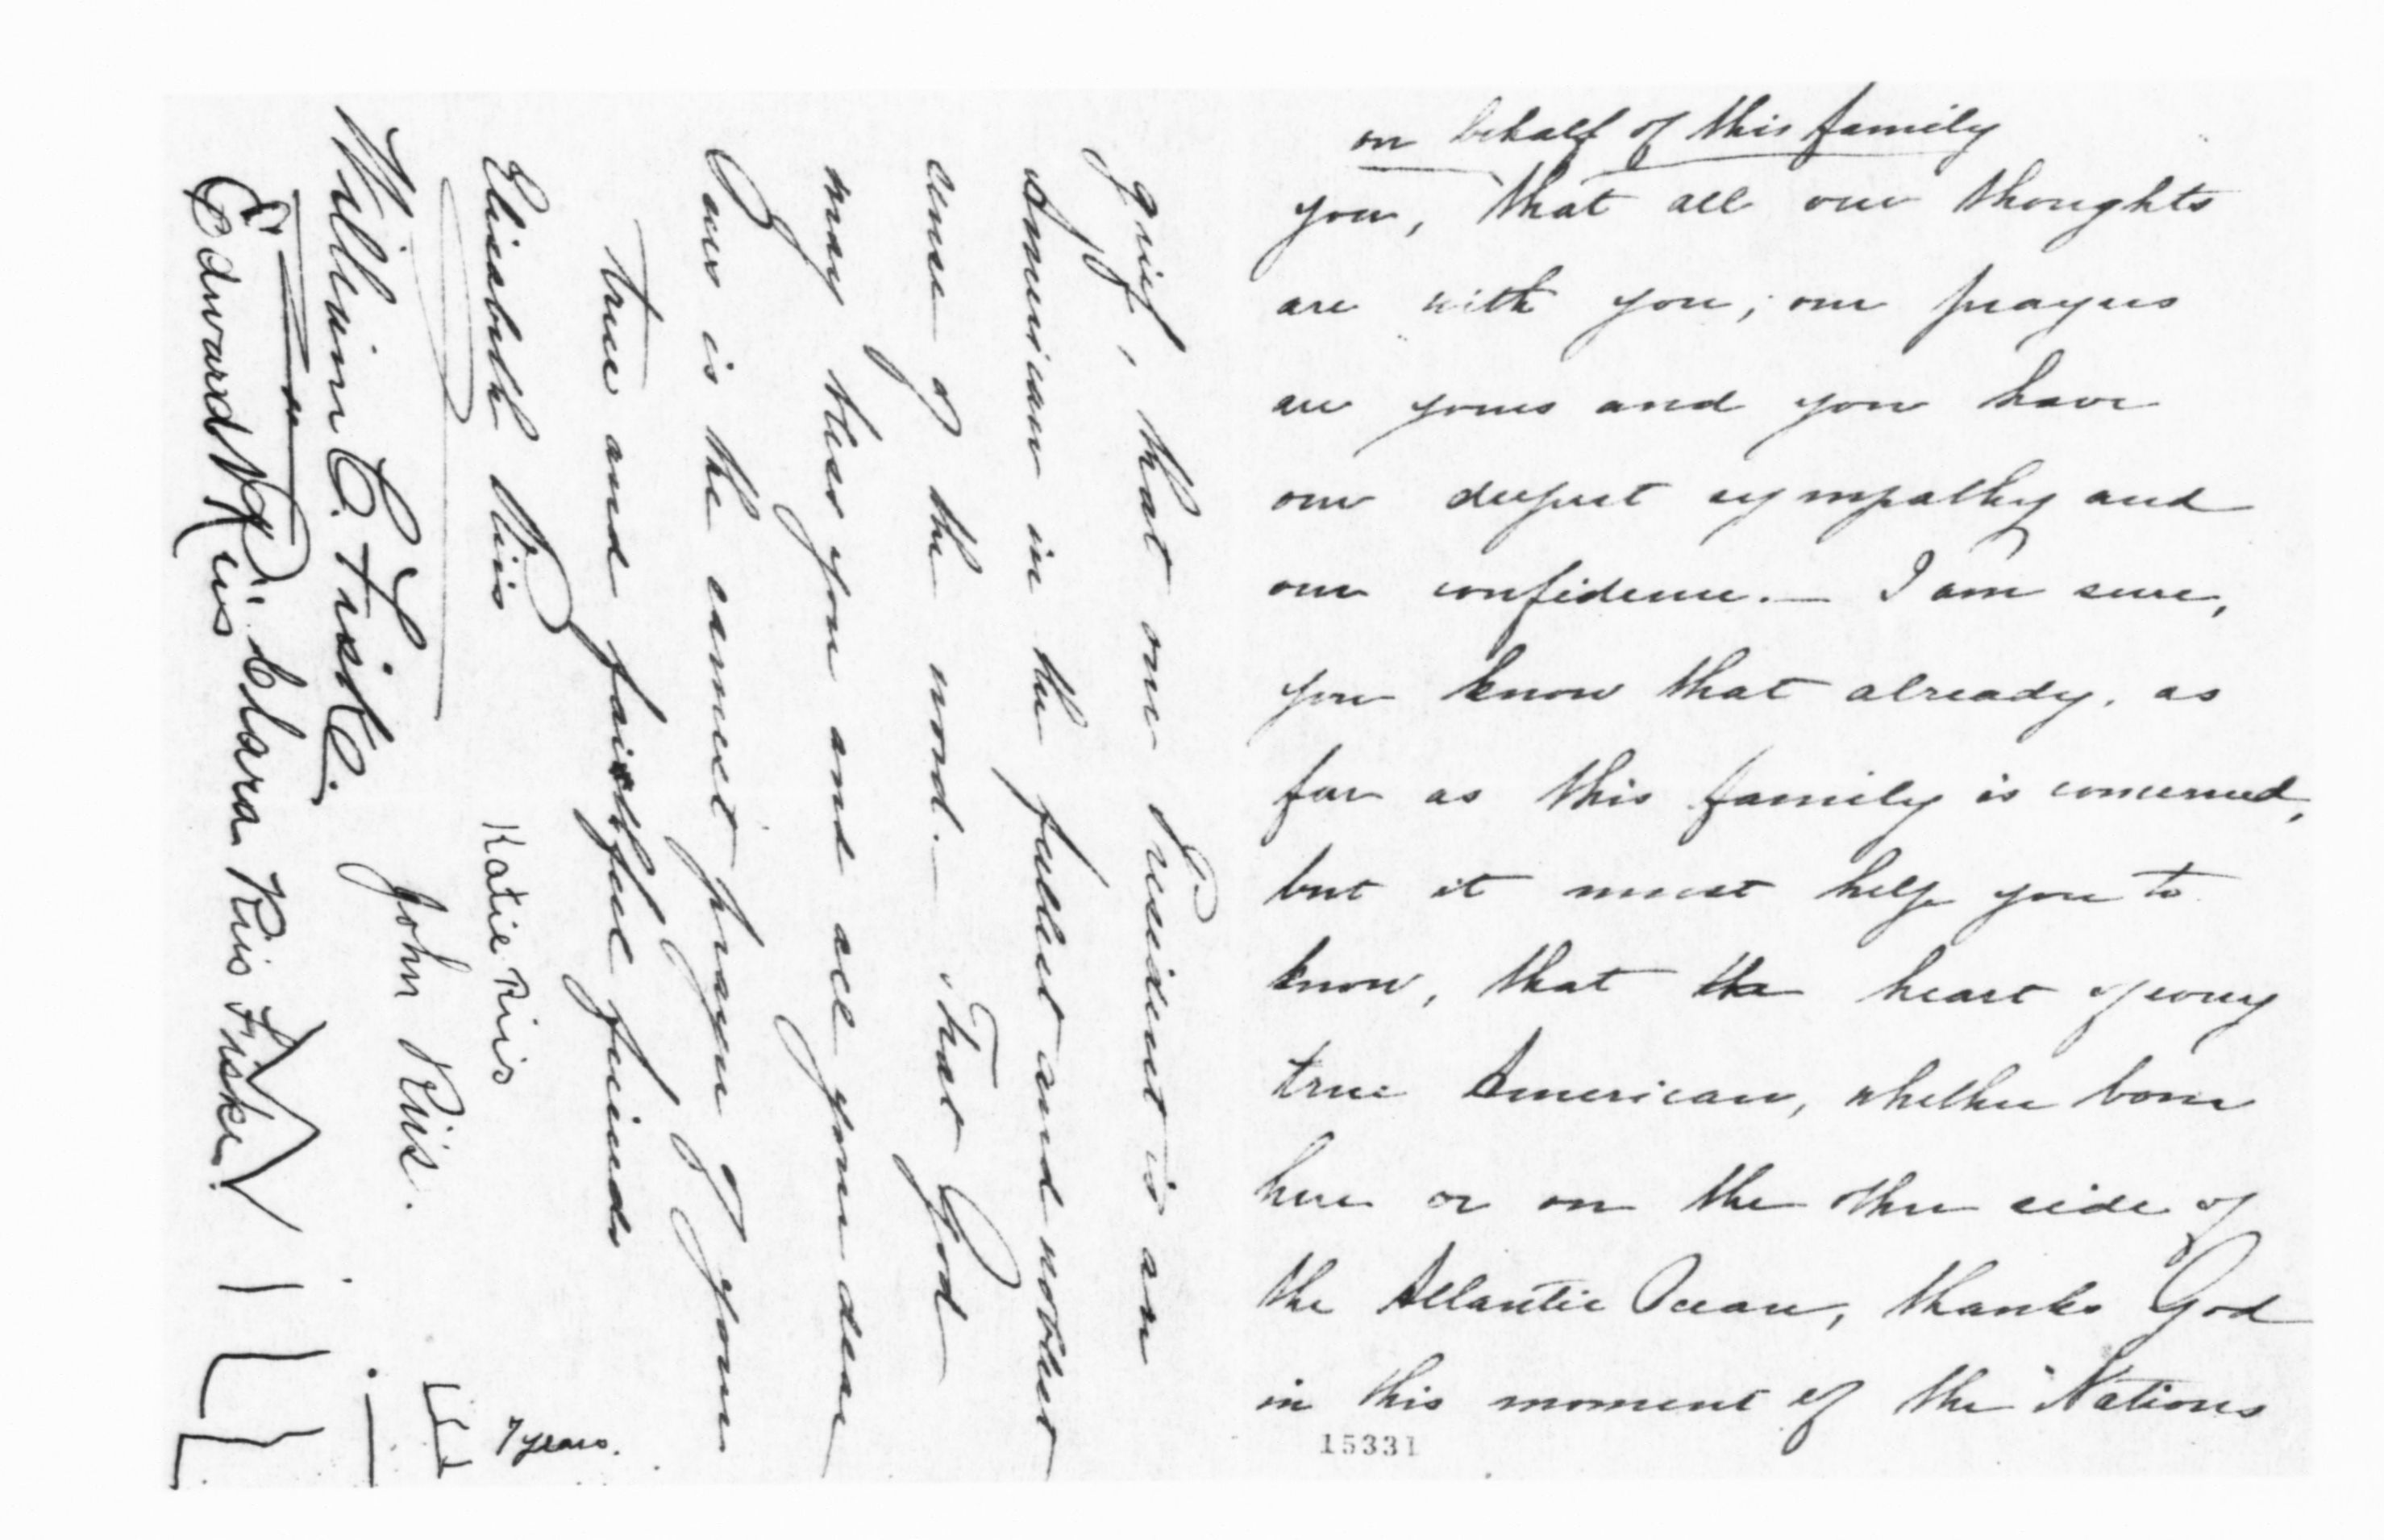 on behalf of this family
you, that all our thoughts
are with you; our prayers
are yours and you have
our deepest sympathy and
our confidence. — I am sure,
you know that already, as
far as this family is concerned,
but it must help you to
know, that the heart of every
true American, whether born
here or on the other side of
the Atlantic Ocean, thanks God
in this moment of the Nations
15331
grief, that our President is an
American in the fullest and noblest
sense of the word. — That God
may bless you and all your dear
ones is the earnest prayer of your
true and faithful friends
Elisabeth Riis
Katie Riis
7 years.
John Riis.
William C. Fiske.
Clara Riis Fiske
Edward V. Riis